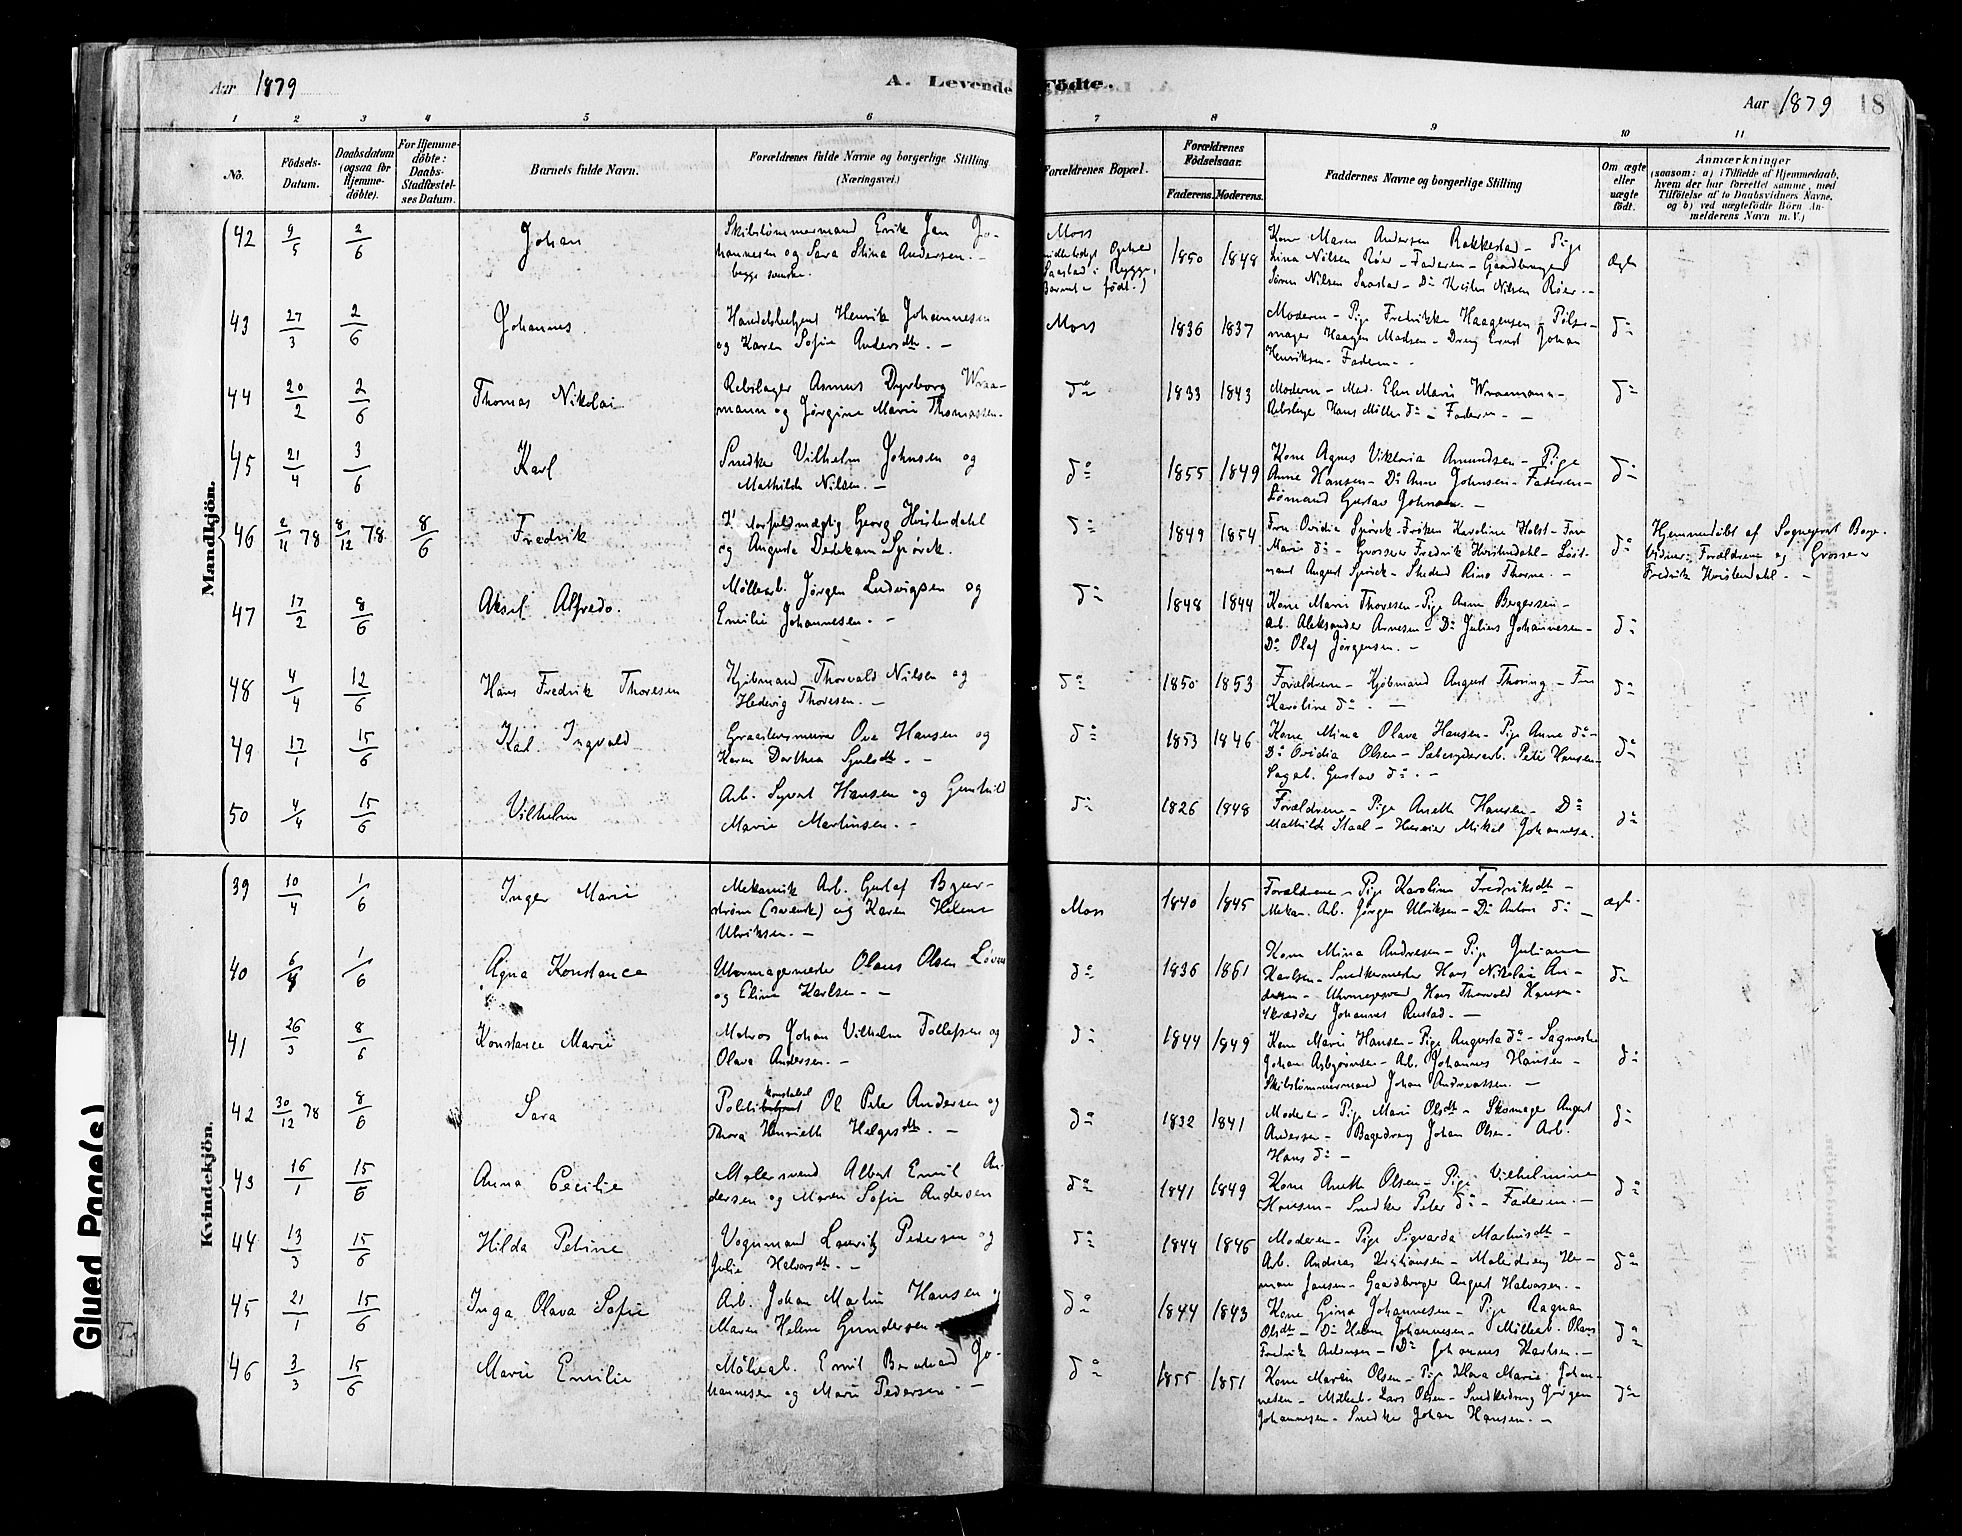 Aar 1879
A. Levende Födte.
Aar 1879 18
1 2 3 4 5 6 7 8 9 10 11
No.
Födsels-
Datum.
Daabsdatum
(ogsaa for
Hjemme-
döbte).
For Hjemme-
döbte:
Daabs-
Stadfæstel-
ses Datum.
Barnets fulde Navn.
Forældrenes fulde Navne og borgerlige Stilling
(Næringsvei.)
Forældrenes Bopæl.
Forældrenes
Födselsaar.
Faderens. Moderens.
Faddernes Navne og borgerlige Stilling
Om ægte
eller
uægte
födt.
Anmærkninger
(saasom: a) i Tilfælde af Hjemmedaab,
hvem der har forrettet samme, med
Tilföielse af to Daabsvidners Navne,
og b) ved uægtefödte Börn An-
melderens Navn m. V.)
Mandkjön.
42 9/5 2/6 Johan
Skibstømmermand Erik Jan Jo-
hannesen og Sara Stina Andersen. -
begge svenske.
Moss
midlertidigt Ophold
Saastad i Rygge,
Barnet er født.)
1850 1848
Kone Maren Andersen Rakkestad - Pige
Lina Nilsen Röer - Faderen - Gaardbruger
Sören Nilsen Saastad - Do Kristen Nilsen Röer. -
Ægte
43 27/3 2/6 Johannes
Handelsbetjent Henrik Johannesen
og Karen Sofie Andersdtr. -
Moss 1836 1837
Moderen - Pige Fredrikke Haagensen - Pølse-
mager Haagen Madsen - Dreng Ernst Johan
Henriksen - Faderen - -
do
44 20/2 2/6 Thomas Nikolai
Rebslager Asmus Dyrborg Wraa-
mann og Jørgine Marie Thomassen.
do 1833 1843
Moderen - Mad. Elen Marie Wraamann -
Rebslager Hans Möller do - Faderen - -
do
45 21/4 3/6 Karl
Snedker Vilhelm Johnsen og
Mathilde Nilsen. -
do 1855 1849
Kone Agnes Viktoria Amundsen - Pige
Anne Hansen - Do Anne Johnsen - Faderen -
Sømand Gustav Johnsen. -
do
46 2/11 78 8/12 78. 8/6 Fredrik
Georg Hvistendahl
og Augusta Dedekam Spörck.
do 1849 1854
Fru Ovidia Spörck - Frøken Karoline Holst - Fru
Marie do - Grosserer Fredrik Hvistendahl - Løit-
nant August Spörck - Student Rino Thorne. -
do
Hjemmedöbt af Sogneprest Barge.
Vidner: Forældrene og Grosserer
Fredrik Hvistendahl. -
47 17/2 8/6 Aksel Alfredo.
Møllearb. Jörgen Ludvigsen og
Emilie Johannesen. -
do 1848 1844
Kone Marie Thoresen - Pige Anne Bergersen -
Arb. Aleksander Arnesen - Do Julius Johannesen -
Do Olaf Jørgensen. -
do
48 4/4 12/6 Hans Fredrik Thoresen
Kjøbmand Thorvald Nilsen og
Hedevig Thoresen. -
do 1850 1853
Forældrene - Kjøbmand August Thoring - Fru
Karoline do. -
do
49 17/1 15/6 Karl Ingvald
Graastensmurer Ove Hansen og
Karen Dorthea Syvlsdtr. -
do 1853 1846
Kone Mina Olava Hansen - Pige Anne do -
Do Ovidia Olsen - Sæbesyderarb. Peter Hansen -
Sagarb. Gustav do. -
do
50 4/4 15/6 Vilhelm
Arb. Syvert Hansen og Gunhild
Marie Martinsen. -
do 1826 1848
Forældrene - Pige Anette Hansen - Do
Mathilde Kaal - Huseier Mikel Johannesen.
do
Kvindekjön.
39 10/4 1/6 Inger Marie
Mekanisk Arb. Gustaf Bger-
ström (svensk) og Karen Helene
Ulriksen. -
Moss 1840 1845
Forældrene - Pige Karoline Fredriksdtr -
Mekan. Arb. Jörgen Ulriksen - Do Anton do -
ægte.
40 6/4 1/6 Agna Konstance
Uhrmagermester Olaus Olsen Löven
og Eline Karlsen. -
do 1836 1861
Kone Mina Andresen - Pige Juliane
Karlsen - Snedkermester Hans Nikolai An-
dersen - Uhrmagersvend Hans Thorvald Hansen -
Skrædder Johannes Rustad. -
do
41 26/3 8/6 Konstance Marie
Matros Johan Vilhelm Tollefsen og
Olava Andersen. -
do 1844 1849
Kone Marie Hansen - Pige Augusta do - Sagmester
Johan Asbjørnsen - Arb. Johannes Hansen -
Skibstømmermand Johan Andreassen. -
do
42 30/12 78 8/6 Sara
Politikonstabel Ole Peter Andersen og
Thora Henriette Helgesdtr. -
do 1832 1841
Moderen - Pige Marie Olsdtr - Skomager August
Andersen - Bagerdreng Johan Olsen - Arb.
Hans do -
do
43 16/1 15/6 Anna Cecilie
Malersvend Albert Emil An-
dersen og Maren Sofie Andersen
do 1841 1849
Kone Anette Olsen - Pige Vilhelmine
Hansen - Snedker Peter do - Faderen. -
do
44 13/3 15/6 Hilda Petrine
Vognmand Lauritz Pedersen og
Julie Halvorsdtr. -
do 1844 1846
Moderen - Pige Sigvarda Martinsdtr -
Arb. Andreas Kristiansen - Malerdreng Her-
man Jansen - Gaardbruger August Halvorsen. -
do
45 21/1 15/6 Inga Olava Sofie
Arb. Johan Martin Hansen og
Maren Helene Gundersen -
do 1844 1843
Kone Gina Johannesen - Pige Ragna
Olsdtr - Do Helene Johannesen - Möllearb. Olaus
Fredrik Antonsen - Do Johannes Karlsen. -
do
46 3/3 15/6 Marie Emilie
Möllearb. Emil Bernhard Jo-
hannesen og Marie Pedersen. -
do 1855 1851
Kone Martin Olsen - Pige Klara Marie Johan-
nesen - Møllearb. Lars Olsen - Snedkerdreng Jörgen
Johannesen - Snedker Johan Hansen. -
do
Glued Page(s)